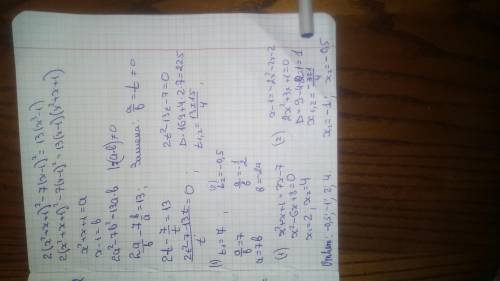 2(x²+x+1)²-7(x-1)²=13(x³-1)
2(x²+x+1)²-7(x-1)²=13(x-1)(x²+x+1)
x²+x+1=a
x-1=b
2a²-7b²=13ab |:(ab)≠0
2a/b - 7b/a = 13; Замена: a/b = t ≠ 0
2t - 7/t = 13
(2t²-7-13t)/t = 0; 2t²-13t-7=0
D=169+4·2·7=225
t₁,₂ = (13±15)/4;
(1) t₁=7, или t₂=-0,5
a/b = 7 a/b = -1/2
a=7b b=-2a
(1) x²+x+1=7x-7
x²-6x+8=0
x₁=2, x₂=4
(2) x-1=-2x²-2x-2
2x²+3x+1=0
D=9-4·2·1=1
x₁,₂ = (-3±1)/4
x₁=-1, x₂=-0,5
Ответ: -0,5; -1; 2; 4.